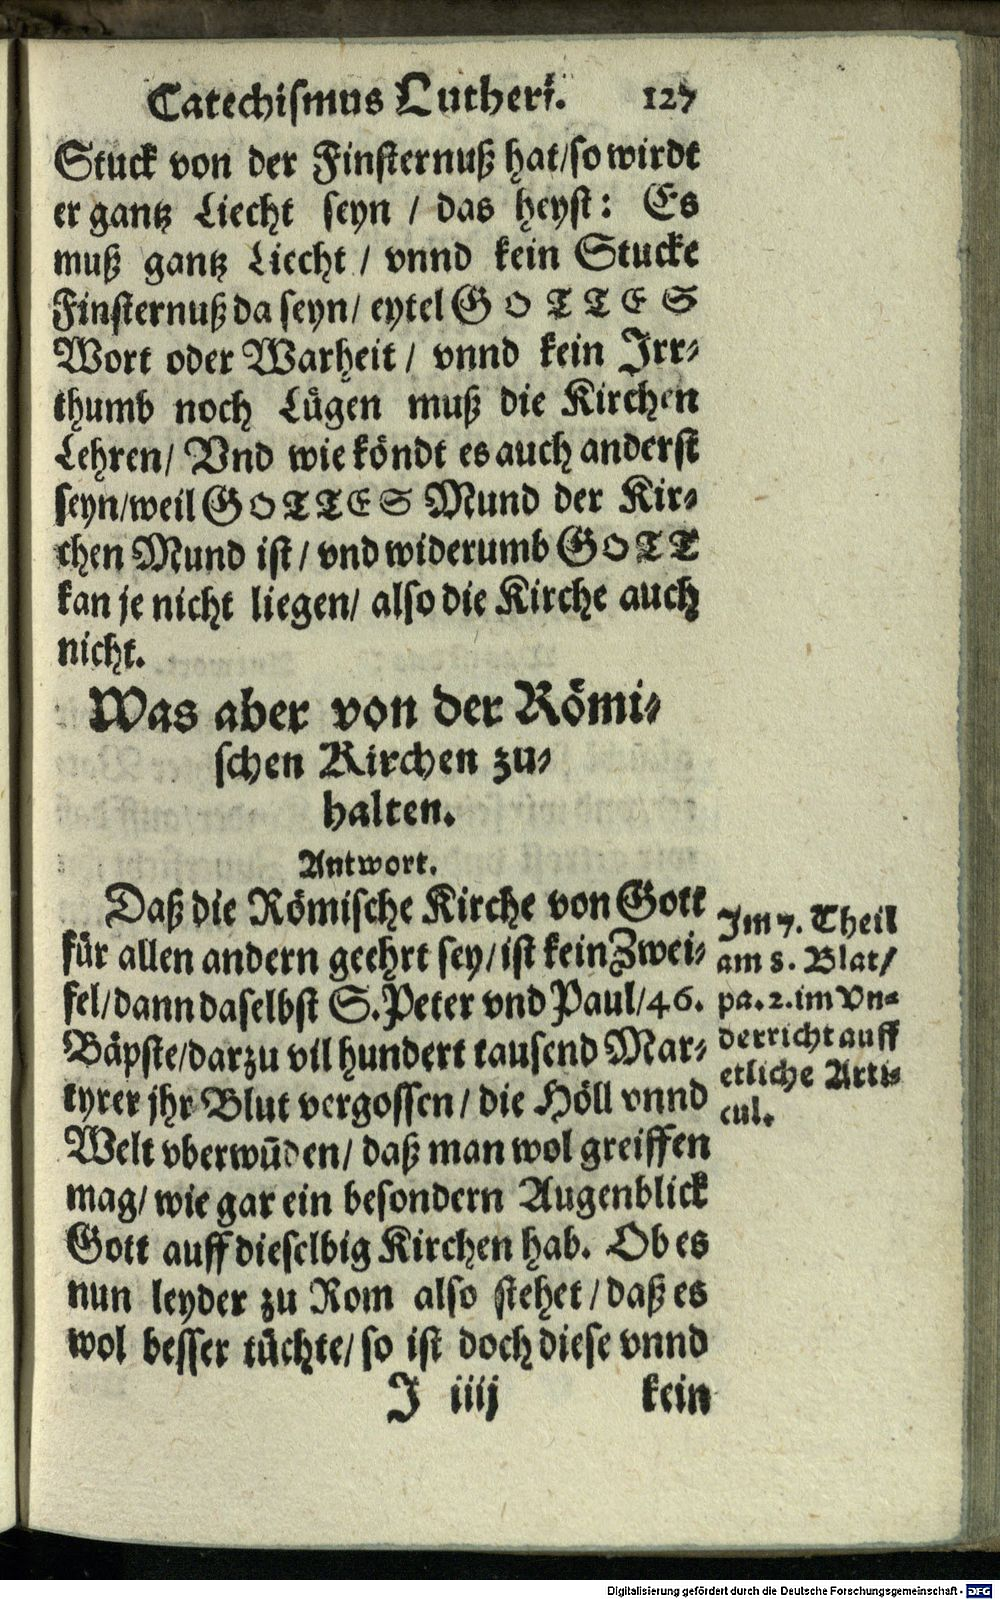 Catechismus Lutheri. 127
Stuck von der Finsternuß hat/so wirdt
er gantz Liecht seyn / das heyst: Es
muß gantz Liecht / vnnd kein Stucke
Finsternuß da seyn/ eytel GOTTES
Wort oder Warheit / vnnd kein Irr-
thumb noch Lügen muß die Kirchen
Lehren/ Vnd wie köndt es auch anderst
seyn/weil GOTTES Mund der Kir-
chen Mund ist / vnd widerumb GOTT
kan je nicht liegen/ also die Kirche auch
nicht.
Was aber von der Römi-
schen Kirchen zu-
halten.
Antwort.
Daß die Römische Kirche von Gott
für allen andern geehrt sey/ist kein Zwei-
fel/dann daselbst S.Peter vnd Paul/46.
Bäpste/darzu vil hundert tausend Mar-
tyrer jhr Blut vergossen/ die Höll vnnd
Welt vberwūden/ daß man wol greiffen
mag/ wie gar ein besondern Augenblick
Gott auff dieselbig Kirchen hab. Ob es
nun leyder zu Rom also stehet/daß es
wol besser tüchte/ so ist doch diese vnnd
Im 7. Theil
am 8. Blat/
pa. 2. im Vn-
derricht auff
etliche Arti-
cul.
J iiij kein
Digitalisierung gefördert durch die Deutsche Forschungsgemeinschaft - DFG